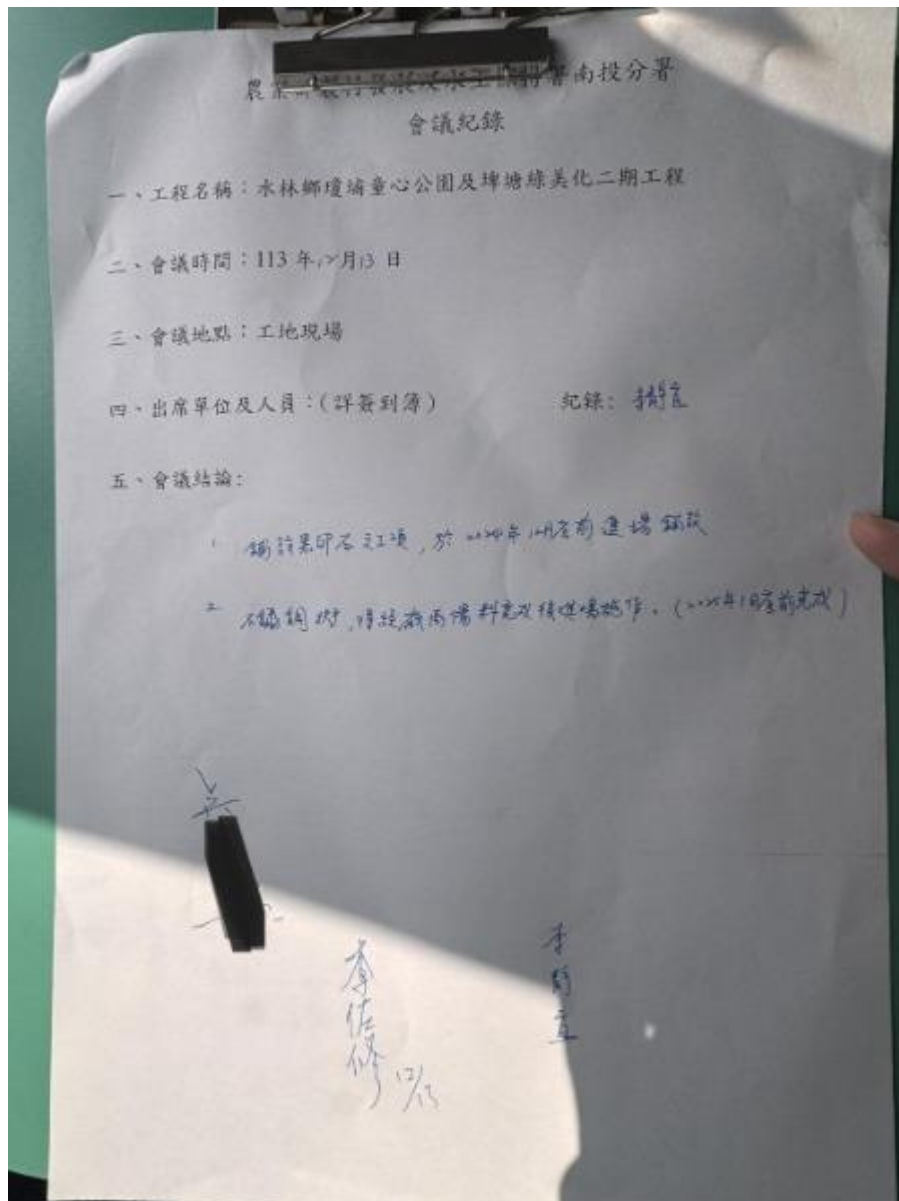 農業部農村發展及水土保持署南投分署
會議紀錄
一、工程名稱：水林鄉瓊埔童心公園及埤塘綠美化二期工程
二、會議時間：113年12月13日
三、會議地點：工地現場
四、出席單位及人員：(詳簽到簿) 紀錄：李靜宜
五、會議結論：
1 鋪設黑卵石之工項，於2024年12月底前進場鋪設
2 不鏽鋼樹，待經廠商備料完成後進場施作。(2025年1月底前完成)
吳
李佐修 12/13
李靜宜